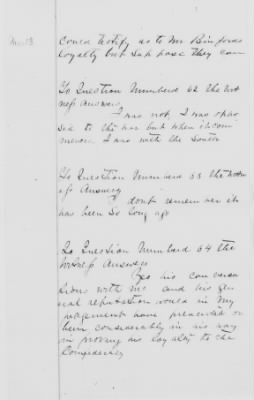 No 13
could testify as to Mr Binfords
loyalty but suppose they can
To Question Numberd 62 the wit
ness answers
I was not, I was oppo
sed to the war but when it com
menced I was with the South
To Question Numberd 63 the witn
ess Answers
I dont remember it
has been so long ago
To Question Numberd 64 the
witness Answers
Yes his conversa
tions with me and his gen
eral reputation would in my
judgement have
been considerably in his way
in proving his loyalty to the
Confederacy